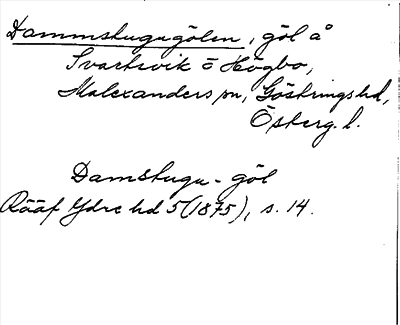 Dammstugugölen, göl å
Svartsvik o Högbo,
Malexanders sn, Göstrings hd,
Österg. l.
Damstugu-göl
Rääf Ydre hd 5 (1875), s. 14.